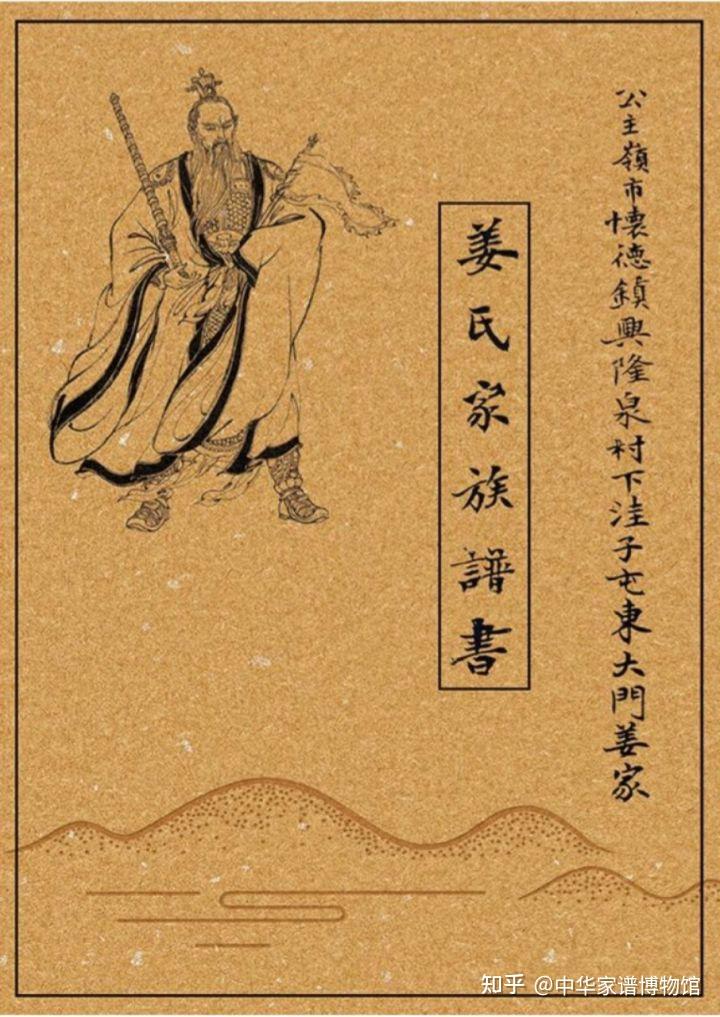 公主嶺市懷德鎮興隆泉村下洼子屯東大門姜家
姜氏家族譜書
知乎 @中华家谱博物馆